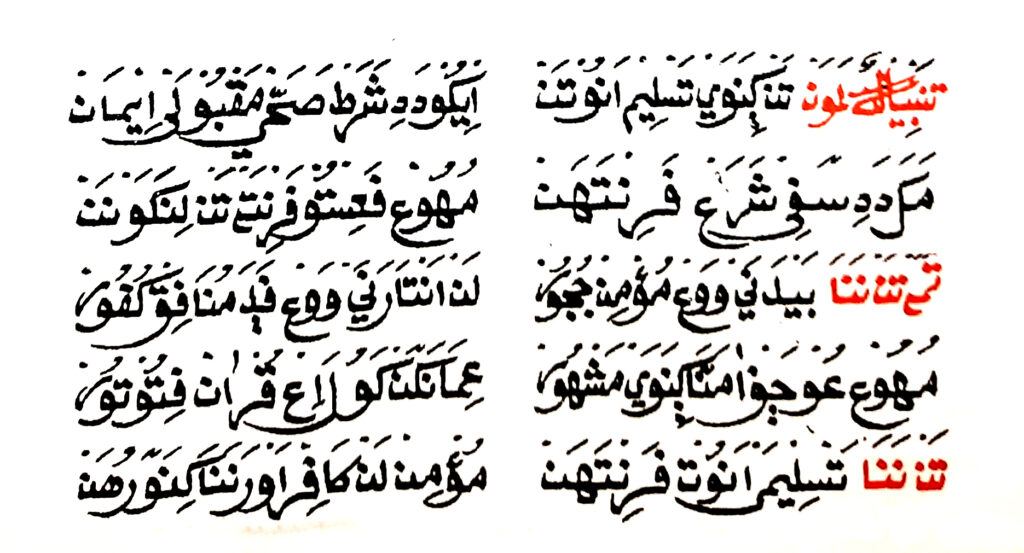 تنبيه لمون تنكنوي تسليم انوتن ايكودد شرط صحي مقبولي ايمان
مكل دد سفي شرع فرنتهن مهوع فعستو فرنتع تن لنكونن
تمع تن ننا بيدني ووع مؤمن ججور لن انتارني ووع فد منافق كفور
مهوع عوجوا متاكنوي مشهور عمانكن كول اع قران فتوتور
تن ننا تسليمى انوت فرنتهن مؤمن لن كافر اورننا كنورهن